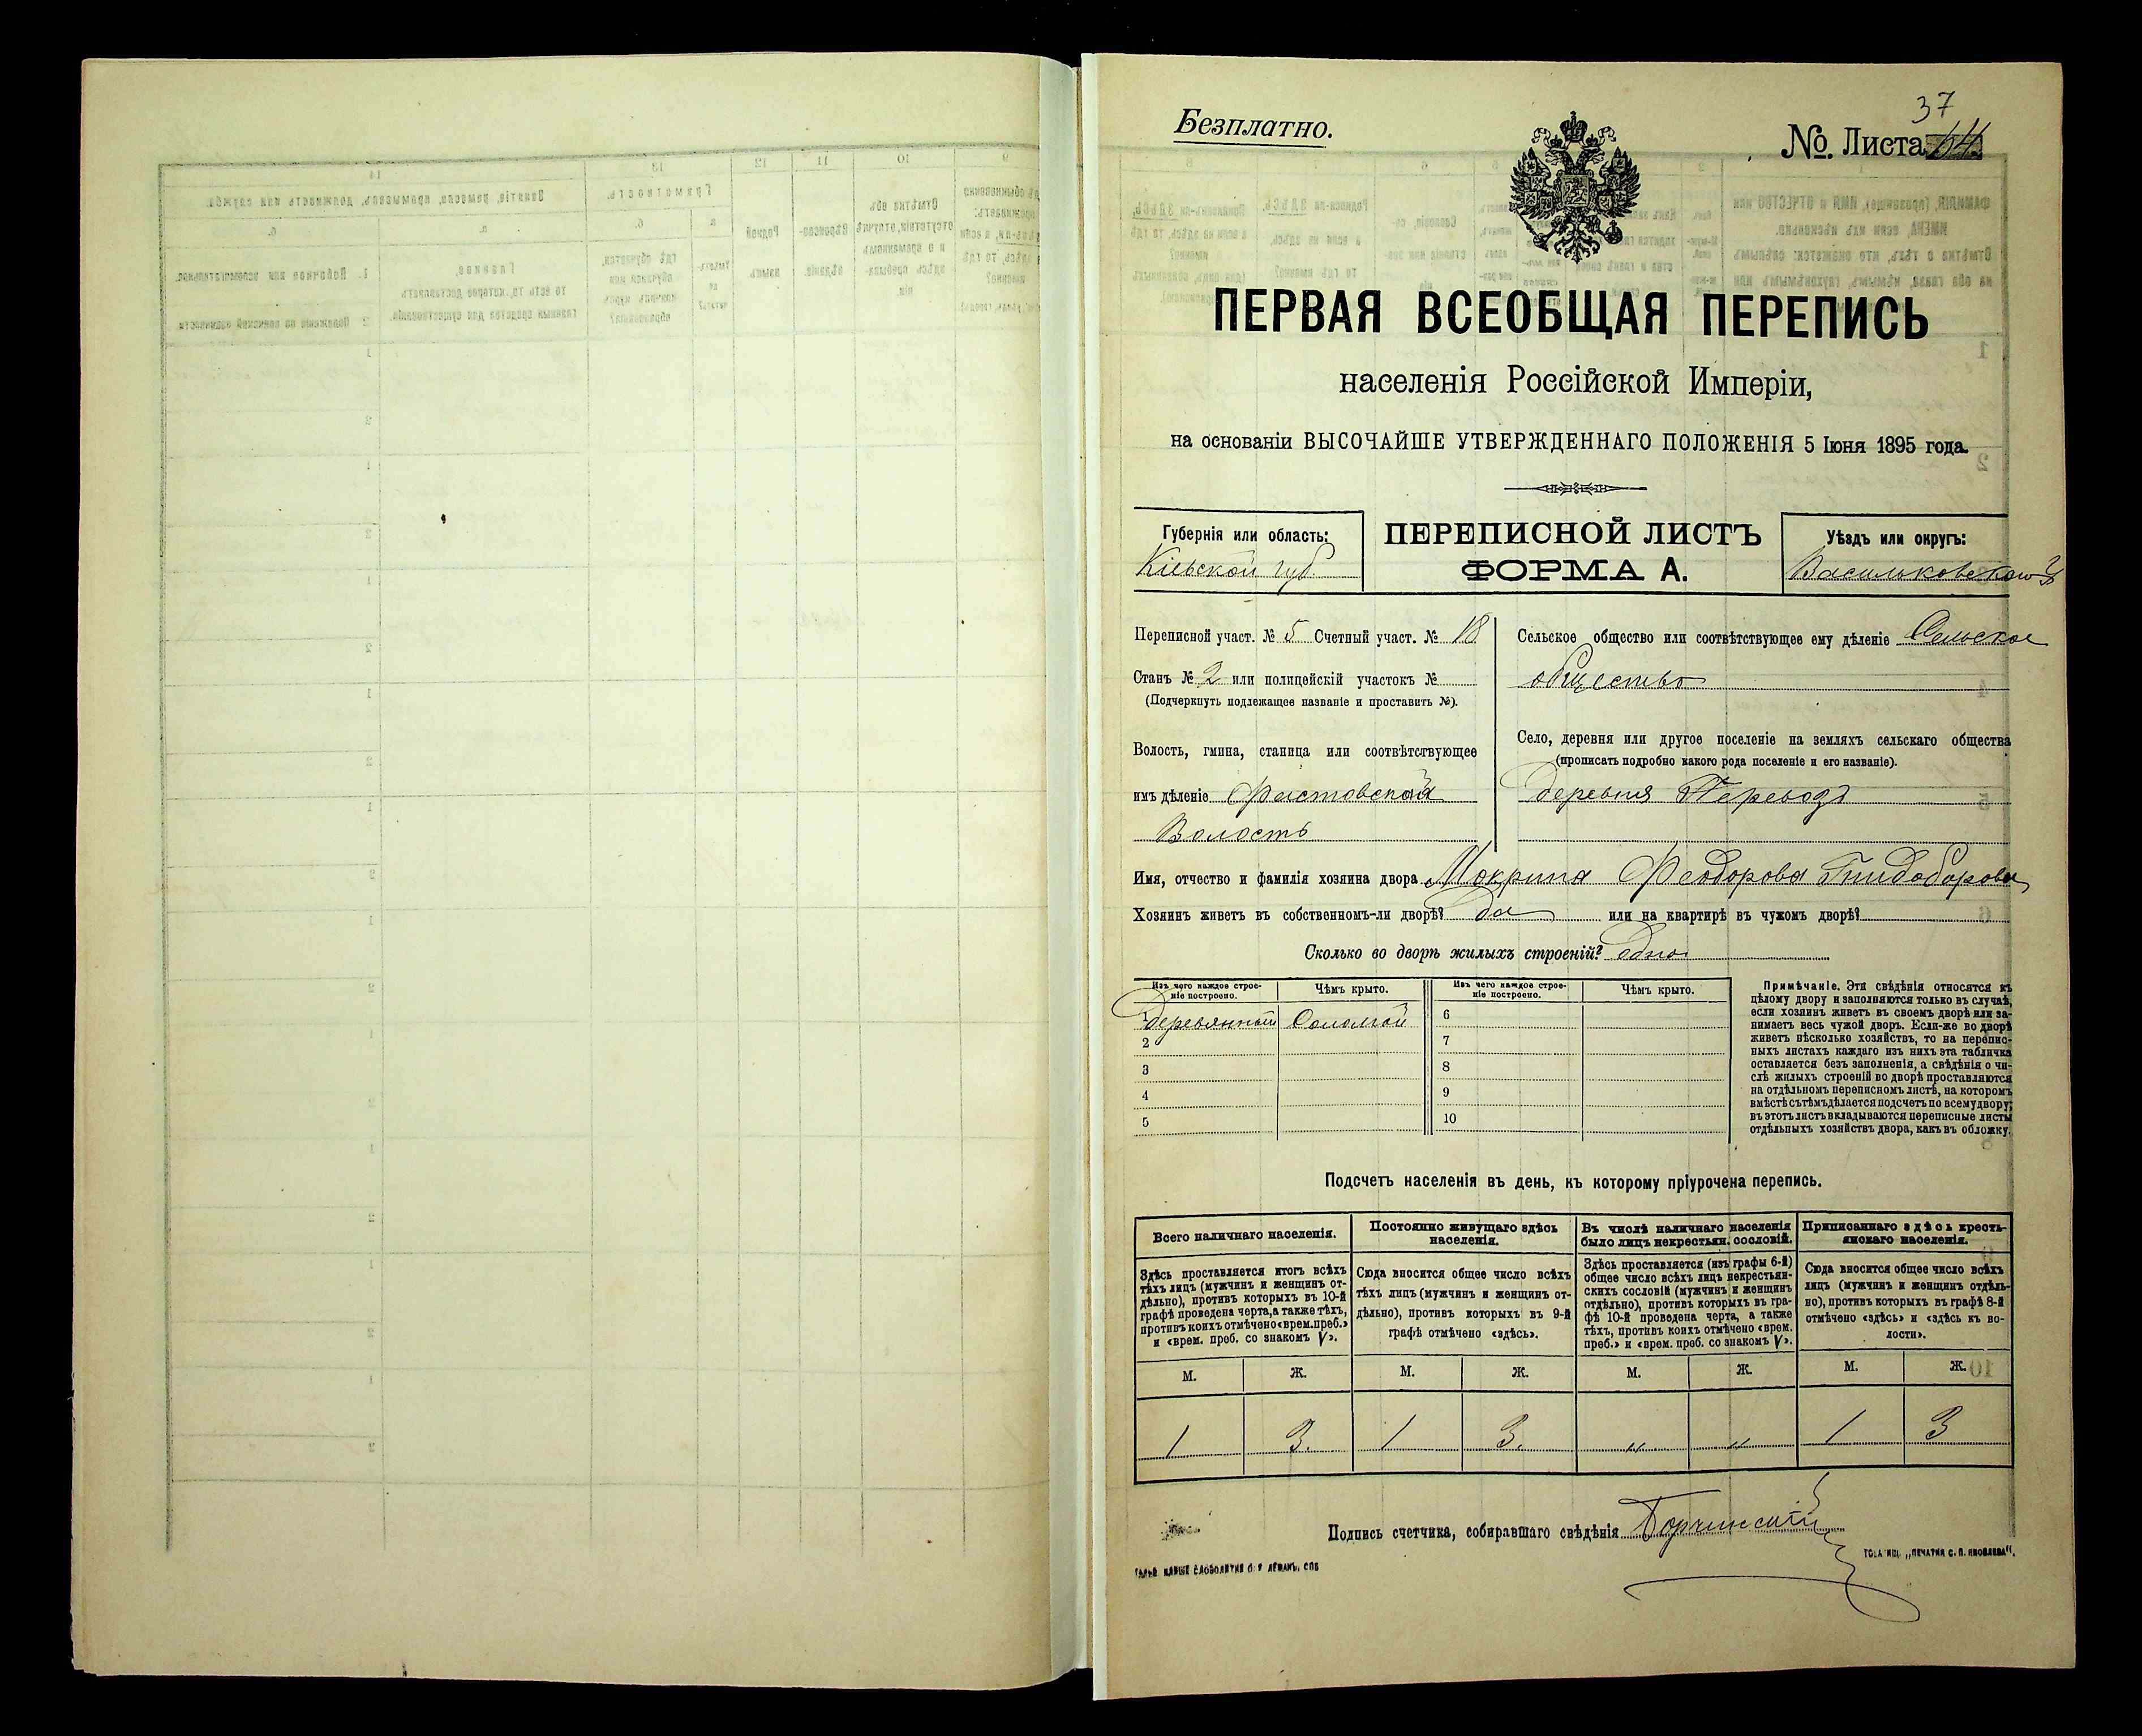 37
Безплатно.
№ Листа 64
ПЕРВАЯ ВСЕОБЩАЯ ПЕРЕПИСЬ
населенія Россійской Имперіи,
на основаніи ВЫСОЧАЙШЕ УТВЕРЖДЕННАГО ПОЛОЖЕНІЯ 5 Іюня 1895 года.
Губернія или область:
Кіевской губ.
ПЕРЕПИСНОЙ ЛИСТЪ
ФОРМА А.
Уѣздъ или округъ:
Васильковскою У
Переписной участ. № 5 Счетный участ. № 18
Станъ № 2 или полицейскій участокъ №
(Подчеркнуть подлежащее названіе и проставить №).
Волость, гмина, станица или соотвѣтствующее
имъ дѣленіе Фастовская
Волость
Сельское общество или соотвѣтствующее ему дѣленіе Сельское
общество
Село, деревня или другое поселеніе на земляхъ сельскаго общества
(прописать подробно какого рода поселеніе и его названіе).
деревня Переводъ
Имя, отчество и фамилія хозяина двора Мокрина Феодорова
Хозяинъ живетъ въ собственномъ-ли дворѣ? Да или на квартирѣ въ чужомъ дворѣ?
Сколько во дворѣ жилыхъ строеній? Одно
Изъ чего каждое строе-
ніе построено.
Чѣмъ крыто.
Изъ чего каждое строе-
ніе построено.
Чѣмъ крыто.
1 деревянный Соломой 6
2 7
3 8
4 9
5 10
Примѣчаніе. Эти свѣдѣнія относятся къ
цѣлому двору и заполняются только въ случаѣ,
если хозяинъ живетъ въ своемъ дворѣ или за-
нимаетъ весь чужой дворъ. Если-же во дворѣ
живетъ нѣсколько хозяйствъ, то на перепис-
ныхъ листахъ каждаго изъ нихъ эта табличка
оставляется безъ заполненія, а свѣдѣнія о чи-
слѣ жилыхъ строеній во дворѣ проставляются
на отдѣльномъ переписномъ листѣ, на которомъ
вмѣстѣ съ тѣмъ дѣлается подсчетъ по всему двору;
въ этотъ листъ вкладываются переписные листы
отдѣльныхъ хозяйствъ двора, какъ въ обложку.
Подсчетъ населенія въ день, къ которому пріурочена перепись.
Всего наличнаго населенія.
Здѣсь проставляется итогъ всѣхъ
тѣхъ лицъ (мужчинъ и женщинъ от-
дѣльно), противъ которыхъ въ 10-й
графѣ проведена черта, а также тѣхъ,
противъ коихъ отмѣчено «врем. преб.»
и «врем. преб. со знакомъ V».
Постоянно живущаго здѣсь
населенія.
Сюда вносится общее число всѣхъ
тѣхъ лицъ (мужчинъ и женщинъ от-
дѣльно), противъ которыхъ въ 9-й
графѣ отмѣчено «здѣсь».
Въ числѣ наличнаго населенія
было лицъ некрестьян. сословій.
Здѣсь проставляется (изъ графы 6-й)
общее число всѣхъ лицъ некрестьян-
скихъ сословій (мужчинъ и женщинъ
отдѣльно), противъ которыхъ въ гра-
фѣ 10-й проведена черта, а также
тѣхъ, противъ коихъ отмѣчено «врем.
преб.» и «врем. преб. со знакомъ V».
Приписаннаго здѣсь кресть-
янскаго населенія.
Сюда вносится общее число всѣхъ
лицъ (мужчинъ и женщинъ отдѣль-
но), противъ которыхъ въ графѣ 8-й
отмѣчено «здѣсь» и «здѣсь къ во-
лости».
М. Ж. М. Ж. М. Ж. М. Ж.
1 3. 1 3. " " 1 3
Подпись счетчика, собиравшаго свѣдѣнія
ТОВАРИЩ. „ПЕЧАТНЯ С. П. ЯКОВЛЕВА".